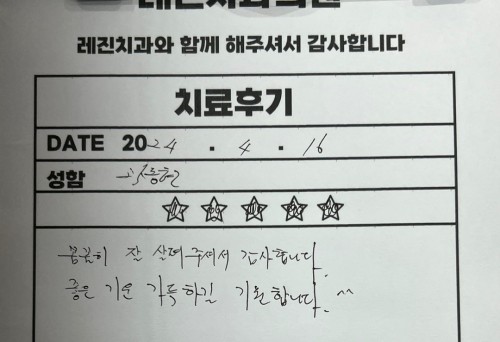 레진치과의원
레진치과와 함께 해주셔서 감사합니다
치료후기
DATE 2024 . 4 . 16
성함
꼼꼼히 잘 살펴주셔서 감사합니다.
좋은 기운 가득하길 기원합니다. ^^